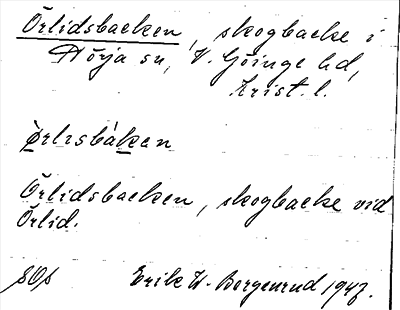 Örlidsbacken, skogbacke i
Hörja sn, V. Göinge hd,
Krist. l.
Örlisbákan
Örlidsbacken, skogbacke vid
Örlid.
Erik W. Borgenrud 1947.